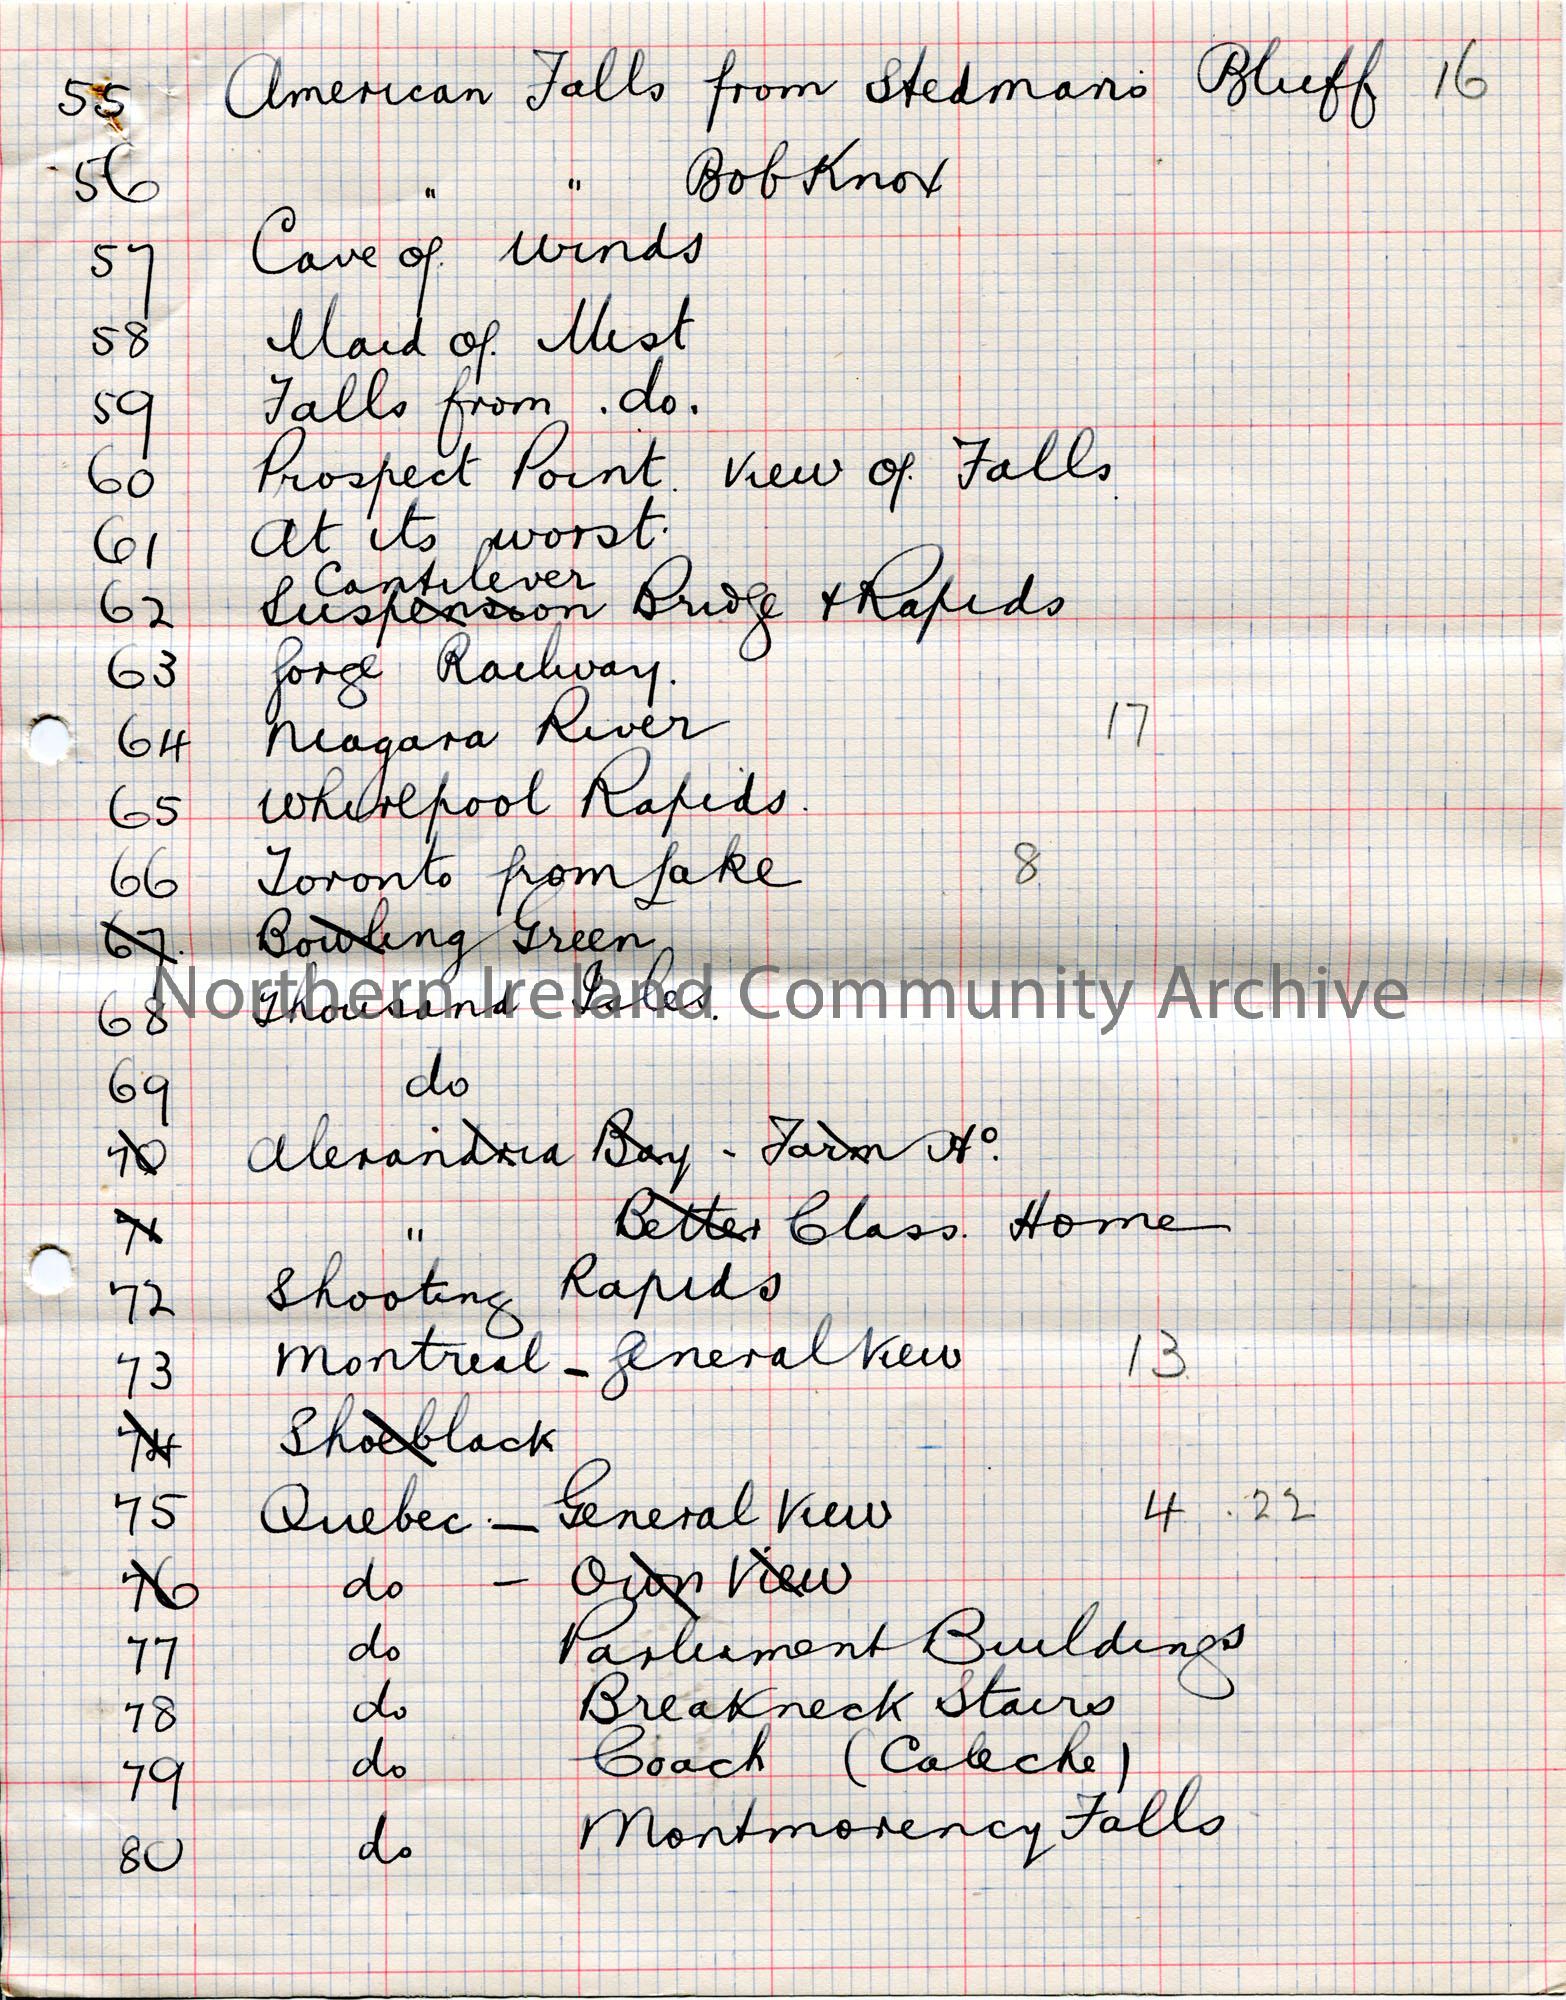 55 American Falls from Stedman's Bluff 16
56 " " Bob Knox
57 Cave of Winds
58 Maid of Mist
59 Falls from .do.
60 Prospect Point. View of Falls
61 At its worst.
Cantilever
62 Suspension Bridge + Rapids
63 Gorge Railway.
64 Niagara River 17
65 Whirlpool Rapids.
66 Toronto from Lake 8
67. Bowling Green
68 Thousand Isles.
Northern Ireland Community Archive
69 do
70 Alexandria Bay - Farm Ho.
71 " Better Class. Home
72 Shooting Rapids
73 Montreal - General View 13
74 Shoeblack
75 Quebec. - General View 4 .22
76 do - Own View
77 do Parliament Buildings
78 do Breakneck Stairs
79 do Coach (Caleche)
80 do Montmorency Falls